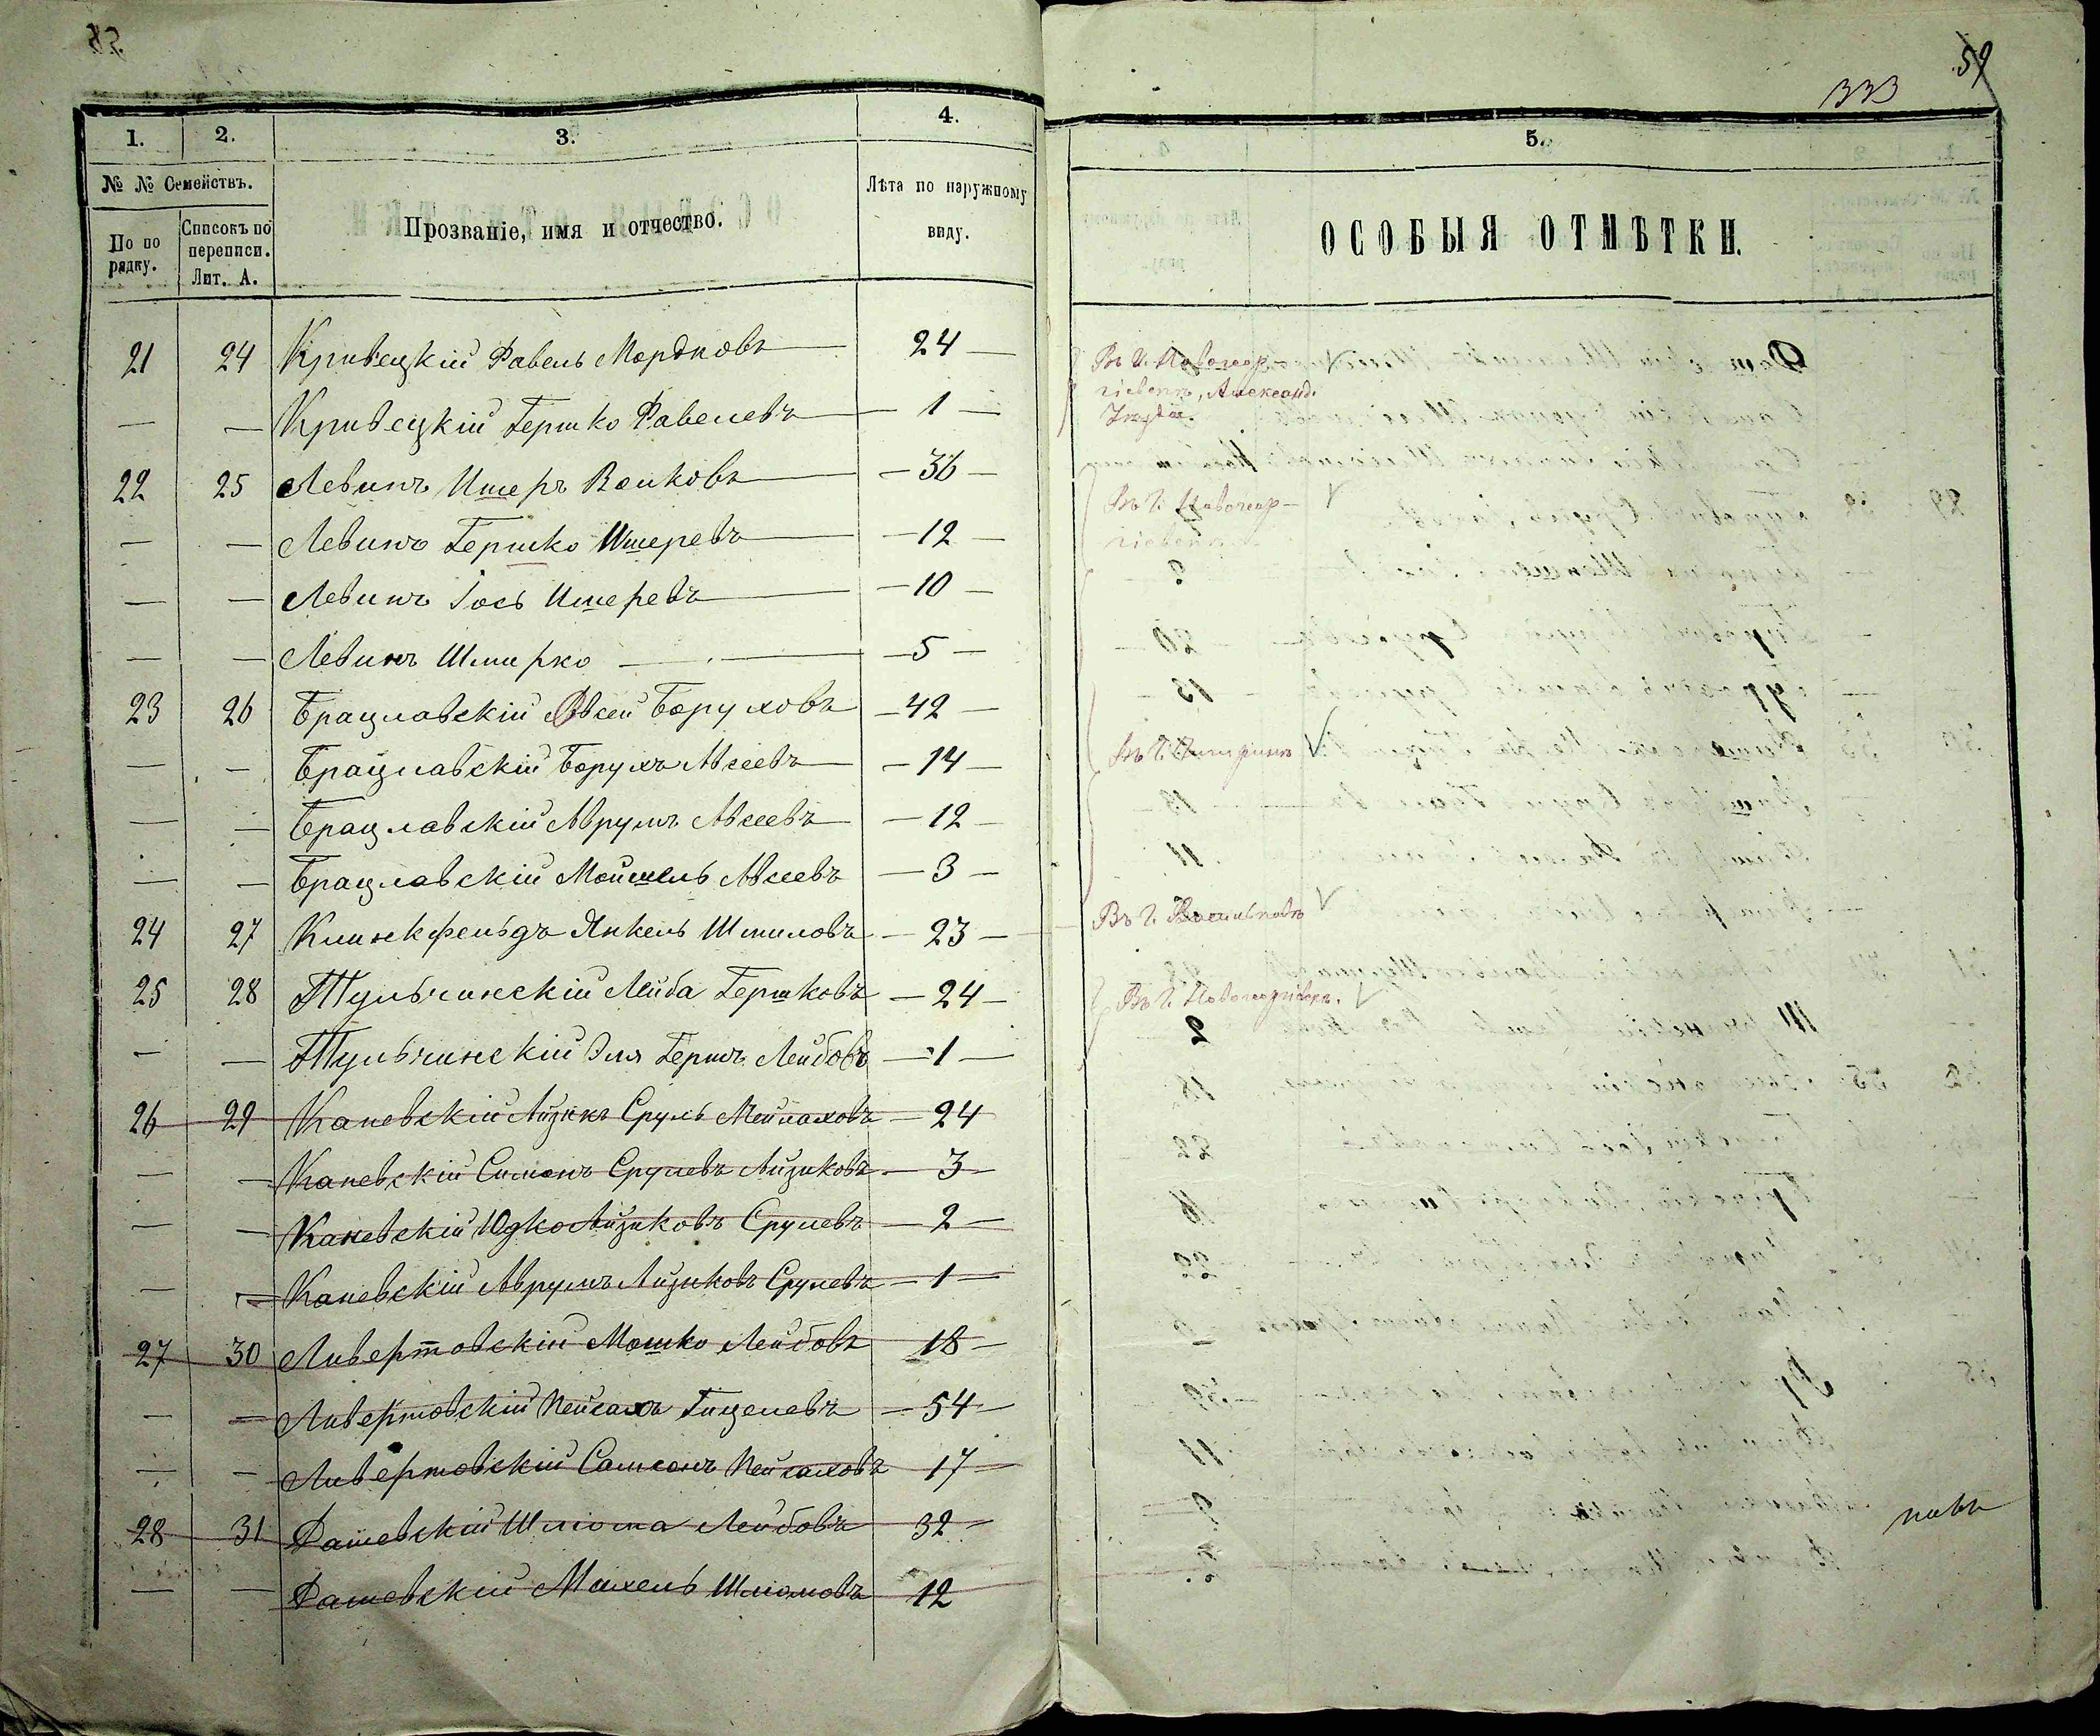 59
333
1. 2. 3. 4.
№ № Семействъ.
По по рядку.
Списокъ по переписи. Лит. А.
Прозваніе, имя и отчество.
Лѣта по наружному виду.
5.
ОСОБЫЯ ОТМѢТКИ.
21 24 Кривецкій Фавель Мордковъ 24
— — Кривецкій Гершко Фавелевъ — 1 —
22 25 Левинъ Ишеръ Волковъ — 36 —
— — Левинъ Гершко Ишеревъ — 12 —
— — Левинъ Іось Ишеревъ — 10 —
— — Левинъ Шмерко — 5 —
23 26 Брацлавскій Авсей Боруховъ — 42 —
— — Брацлавскій Борухъ Авсеевъ — 14 —
— — Брацлавскій Аврумъ Авсеевъ — 12 —
— — Брацлавскій Мошель Авсеевъ — 3 —
24 27 Клинкфельдъ Янкель Шмиловъ — 23 —
25 28 Тульчинскій Лейба Гершковъ — 24 —
— — Тульчинскій Эля Гершъ Лейбовъ — 1 —
26 29 Каневскій Айзикъ Сруль Мейлаховъ — 24
— — Каневскій Симонъ Срулевъ Айзиковъ — 3 —
— — Каневскій Юдко Айзиковъ Срулевъ — 2 —
— — Каневскій Аврумъ Айзиковъ Срулевъ — 1 —
27 30 Ливертовскій Мошко Лейбовъ 18 —
— — Ливертовскій Пейсахъ Гицелевъ — 54 —
— — Ливертовскій Самсонъ Пейсаховъ 17 —
28 31 Рашевскій Шліома Лейбовъ 32 —
— — Рашевскій Михель Шліомовъ 12
Въ Г. Новогеор-
гіевскъ, Александ.
Въ Г. Новогеор-
гіевскъ
Въ Г. Чигиринъ
Въ Г. Васильковъ
Въ Г. Новогеоргіевск.